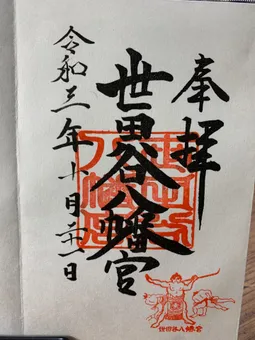 奉拝
世田谷八幡宮
令和三年十月廿一日
世田谷八幡宮